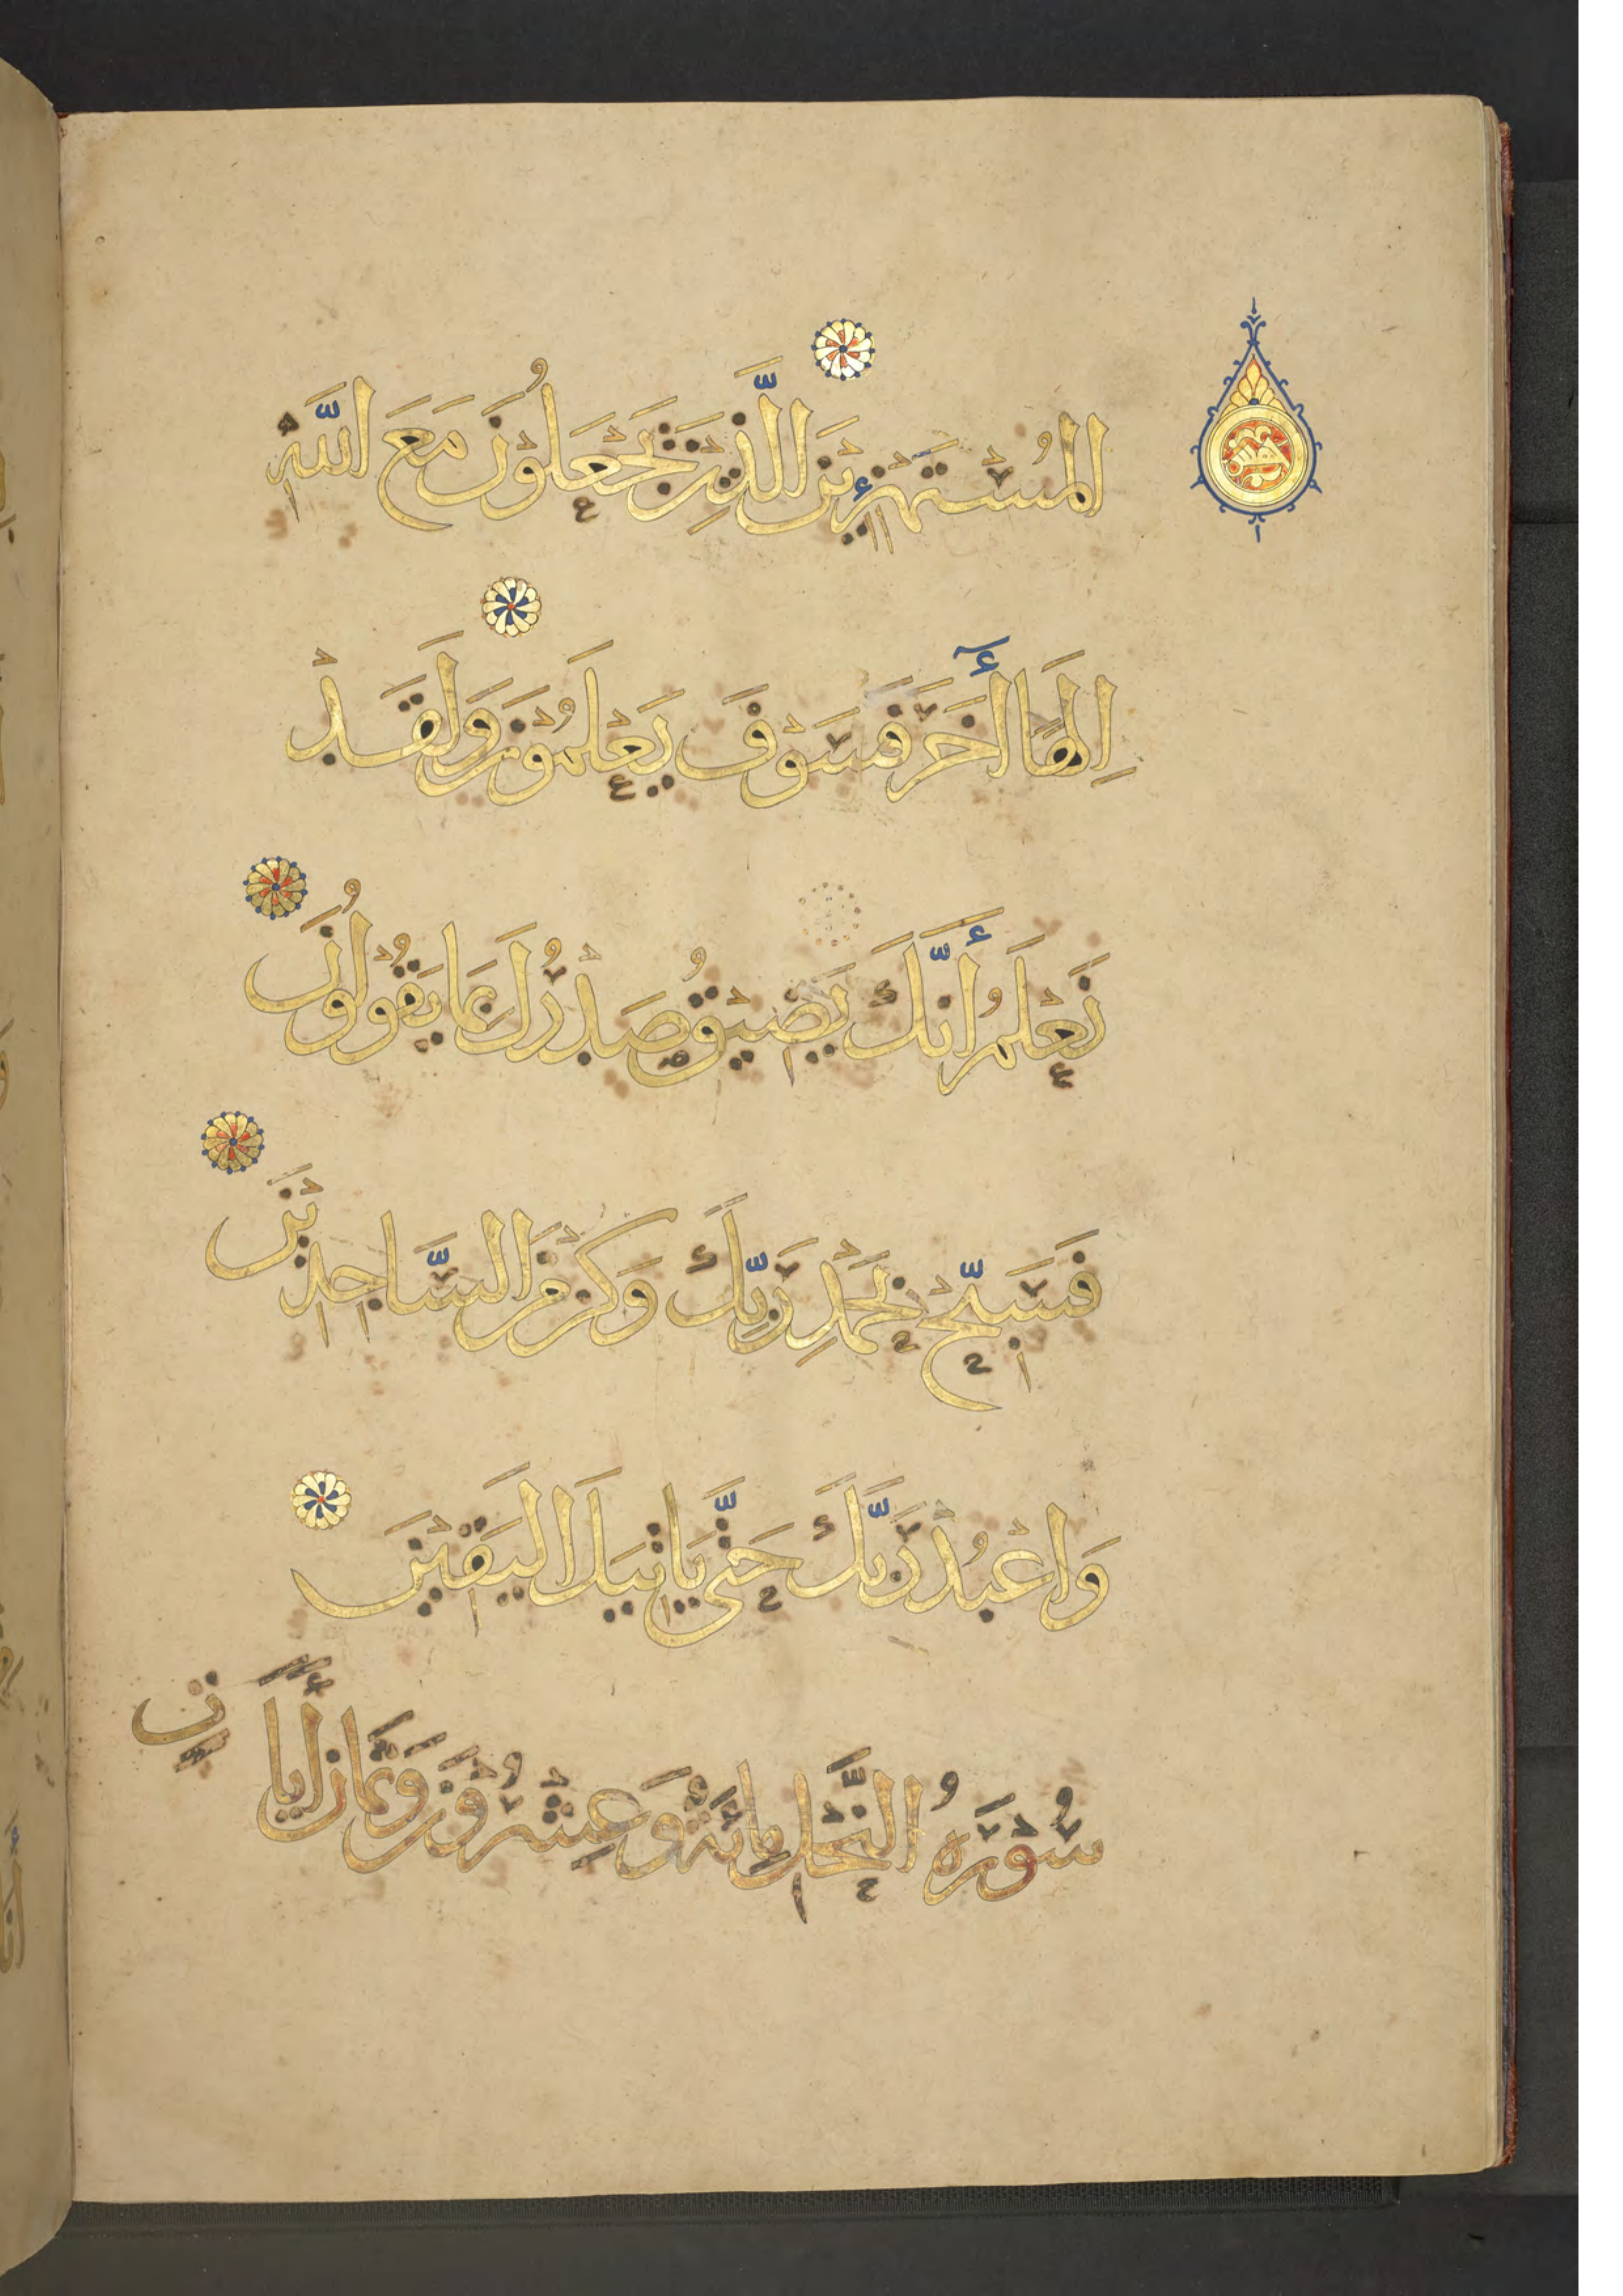 المُسْتَهْزِئِيْنَ الَّذِيْنَ يَجْعَلُوْنَ مَعَ اللَّهِ
اِلٰهًا أٰخَرَ فَسَوْفَ يَعْلَمُوْنَ وَلَقَدْ
نَعْلَمُ أَنَّكَ يَضِيْقُ صَدْرُكَ بِمَا يَقُوْلُوْنَ
فَسَبِّحْ بِحَمْدِ رَبِّكَ وَكُنْ مِنَ السَّاجِدِيْنَ
وَاعْبُدْ رَبَّكَ حَتَّى يَاتِيَكَ الْيَقِيْنُ
سُوْرَةُ النَّحْلِ مِائَةٌ وَعِشْرُوْنَ وَثَمَانِ أَيَاتٍ